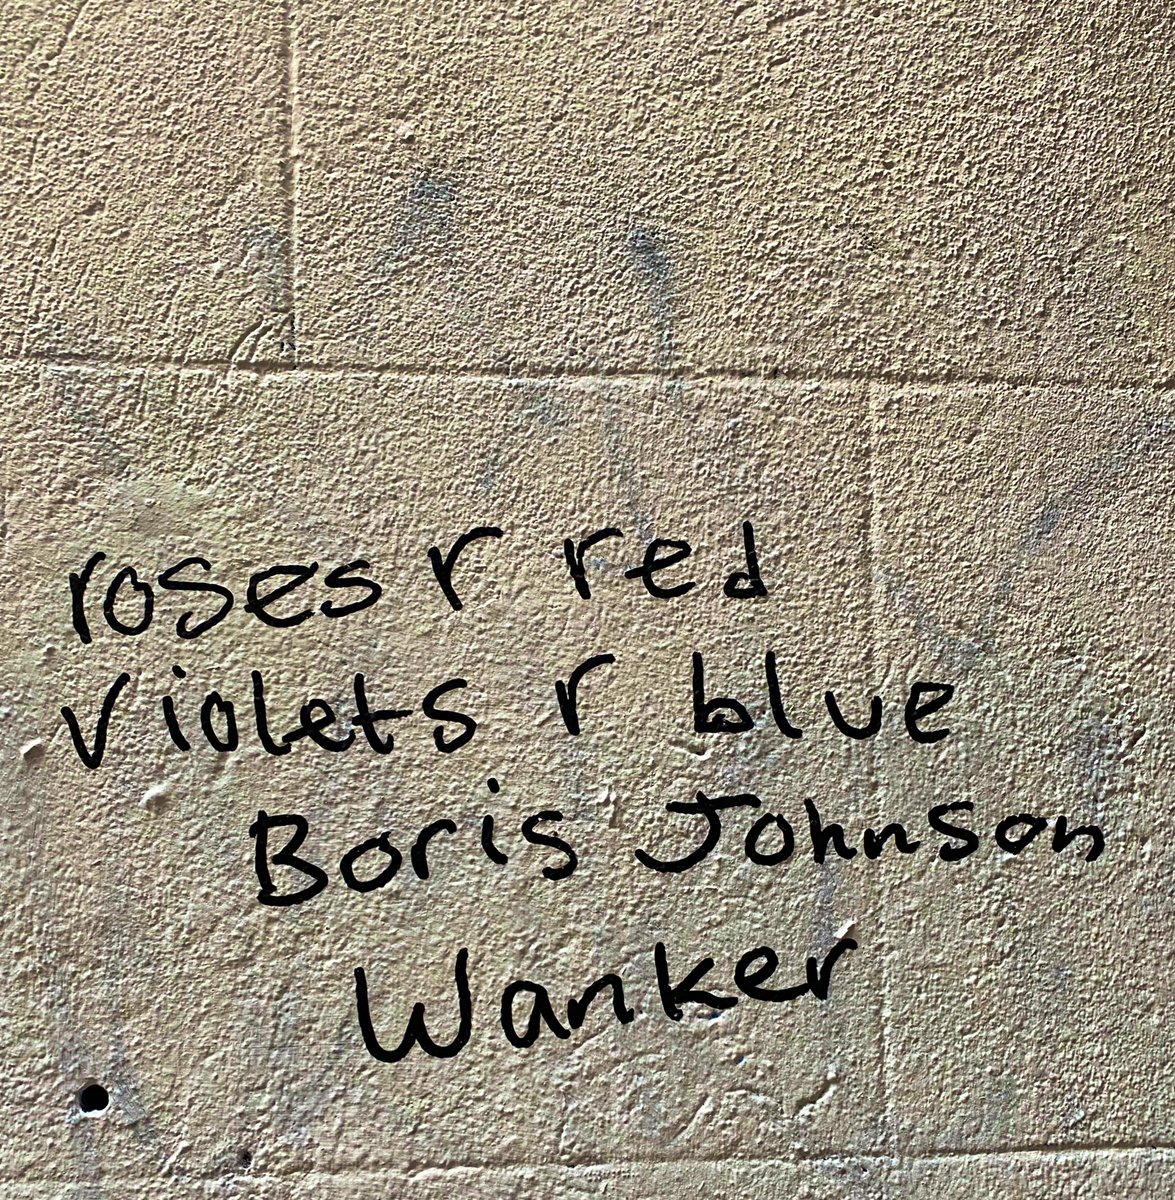 roses r red
violets r blue
Boris Johnson
Wanker